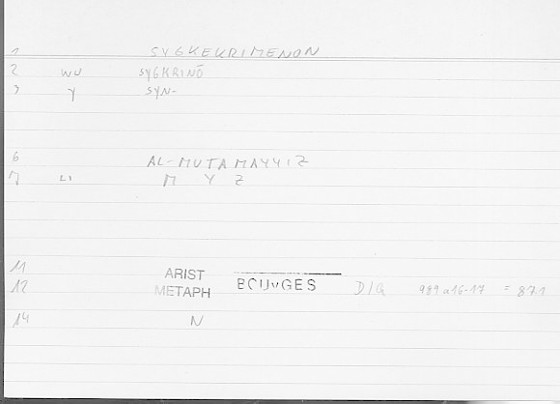 1 SYGKEKRIMENON
2 WU SYGKRINŌ
3 Y SYN-
6 AL-MUTAMAYYIZ
7 LI M Y Z
11 ARIST
12 METAPH BOUYGES D/G 989a16-17 = 87.1
14 N